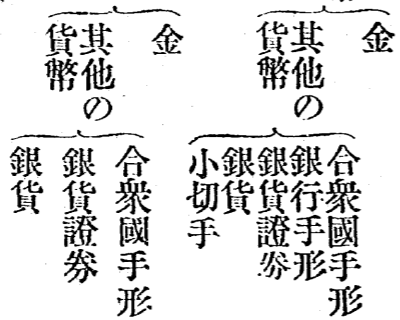 金
其他の
貨幣
合衆國手形
銀行手形
銀貨證券
銀貨
小切手
金
其他の
貨幣
合衆國手形
銀貨證券
銀貨